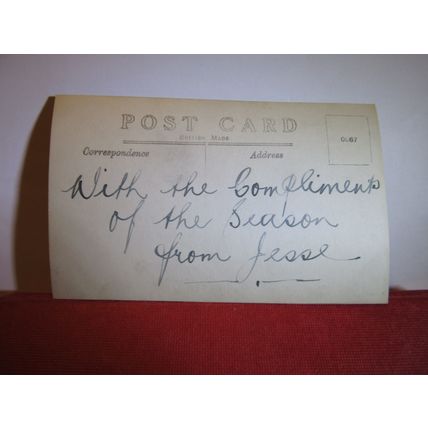 POST CARD
BRITISH MADE
Correspondence
Address
OL67
With the Compliments
of the Season
from Jesse